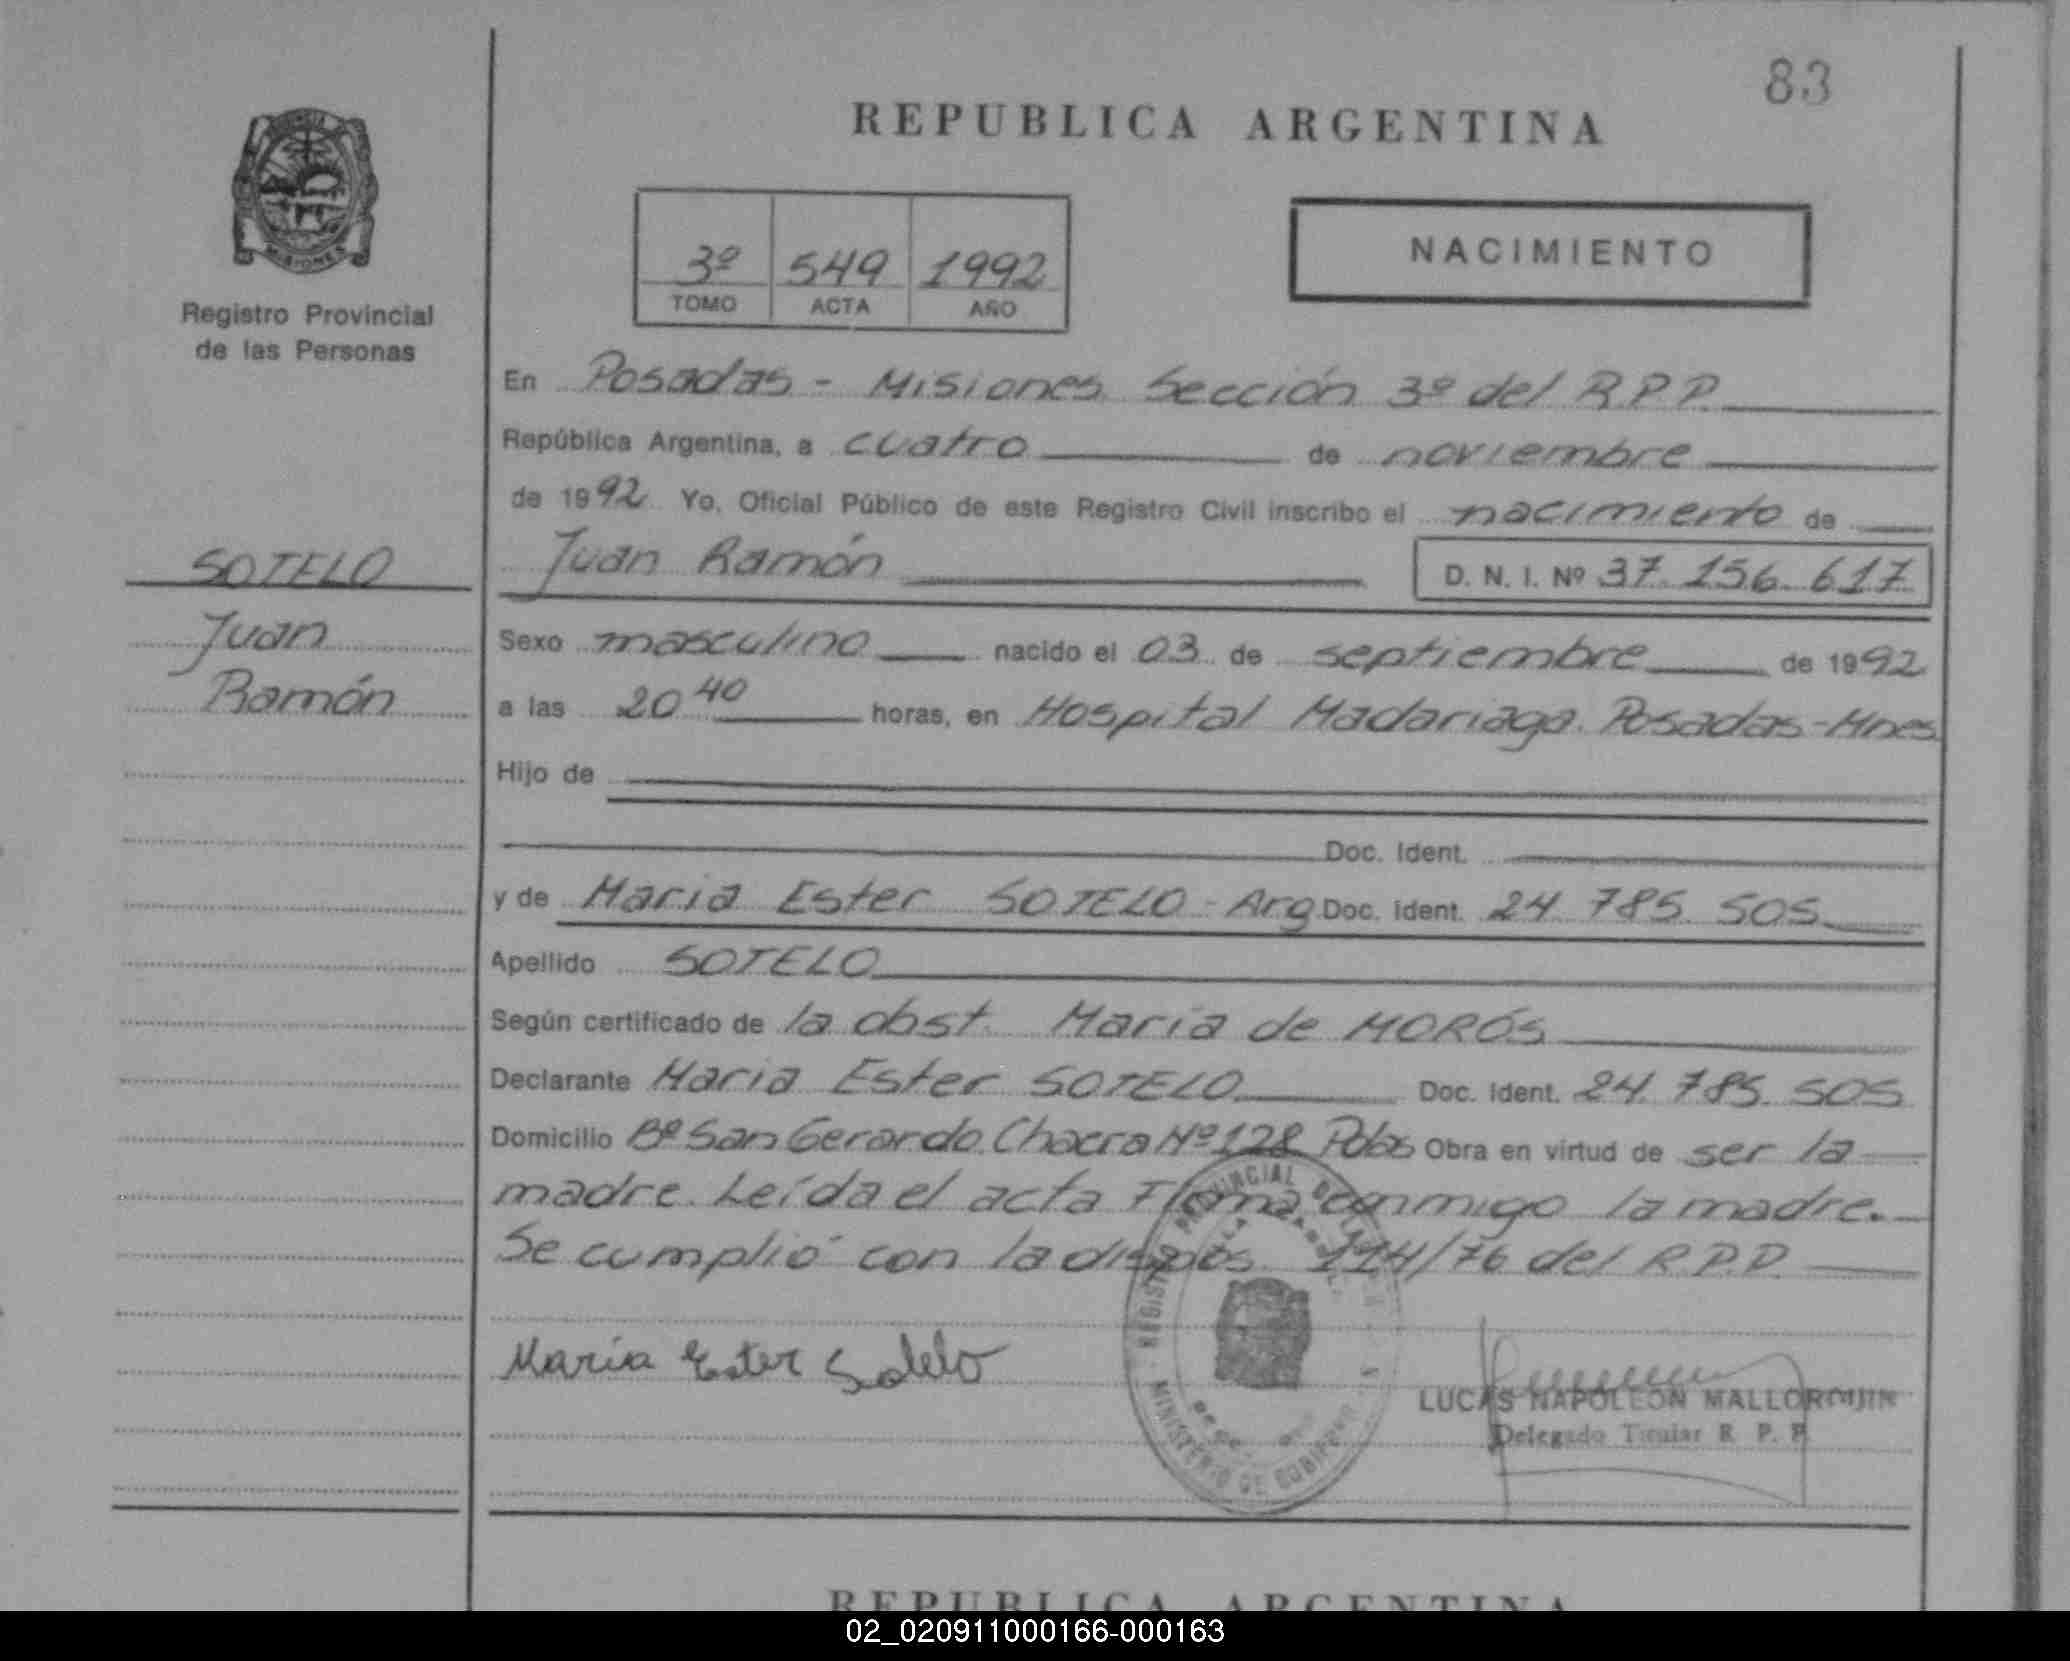 83
REPUBLICA ARGENTINA
MISIONES
Registro Provincial
de las Personas
3º 549 1992
TOMO ACTA AÑO
NACIMIENTO
En Posadas - Misiones. Sección 3º del R.P.P.
República Argentina, a cuatro de noviembre
de 1992 Yo, Oficial Público de este Registro Civil inscribo el nacimiento de
SOTELO
Juan
Ramón
Juan Ramón D. N. I. Nº 37.156.617
Sexo masculino nacido el 03 de septiembre de 1992
a las 20 40 horas, en Hospital Madariaga. Posadas-Mnes
Hijo de
Doc. Ident.
y de Maria Ester SOTELO - Arg Doc. Ident. 24.785.505
Apellido SOTELO
Según certificado de la obst. Maria de MORÓS
Declarante Maria Ester SOTELO Doc. Ident. 24.785.505
Domicilio Bº San Gerardo. Chacra Nº 128 Pdas Obra en virtud de ser la
madre. Leída el acta Firma conmigo la madre.
Se cumplió con la dispos. 114/76 del R.P.P.
REGISTRO PROVINCIAL DE LAS
MINISTERIO DE GOBIERNO
Maria Ester Sotelo
LUCAS NAPOLEON
Delegado Titular R. P. P.
REPUBLICA ARGENTINA
02_020911000166-000163